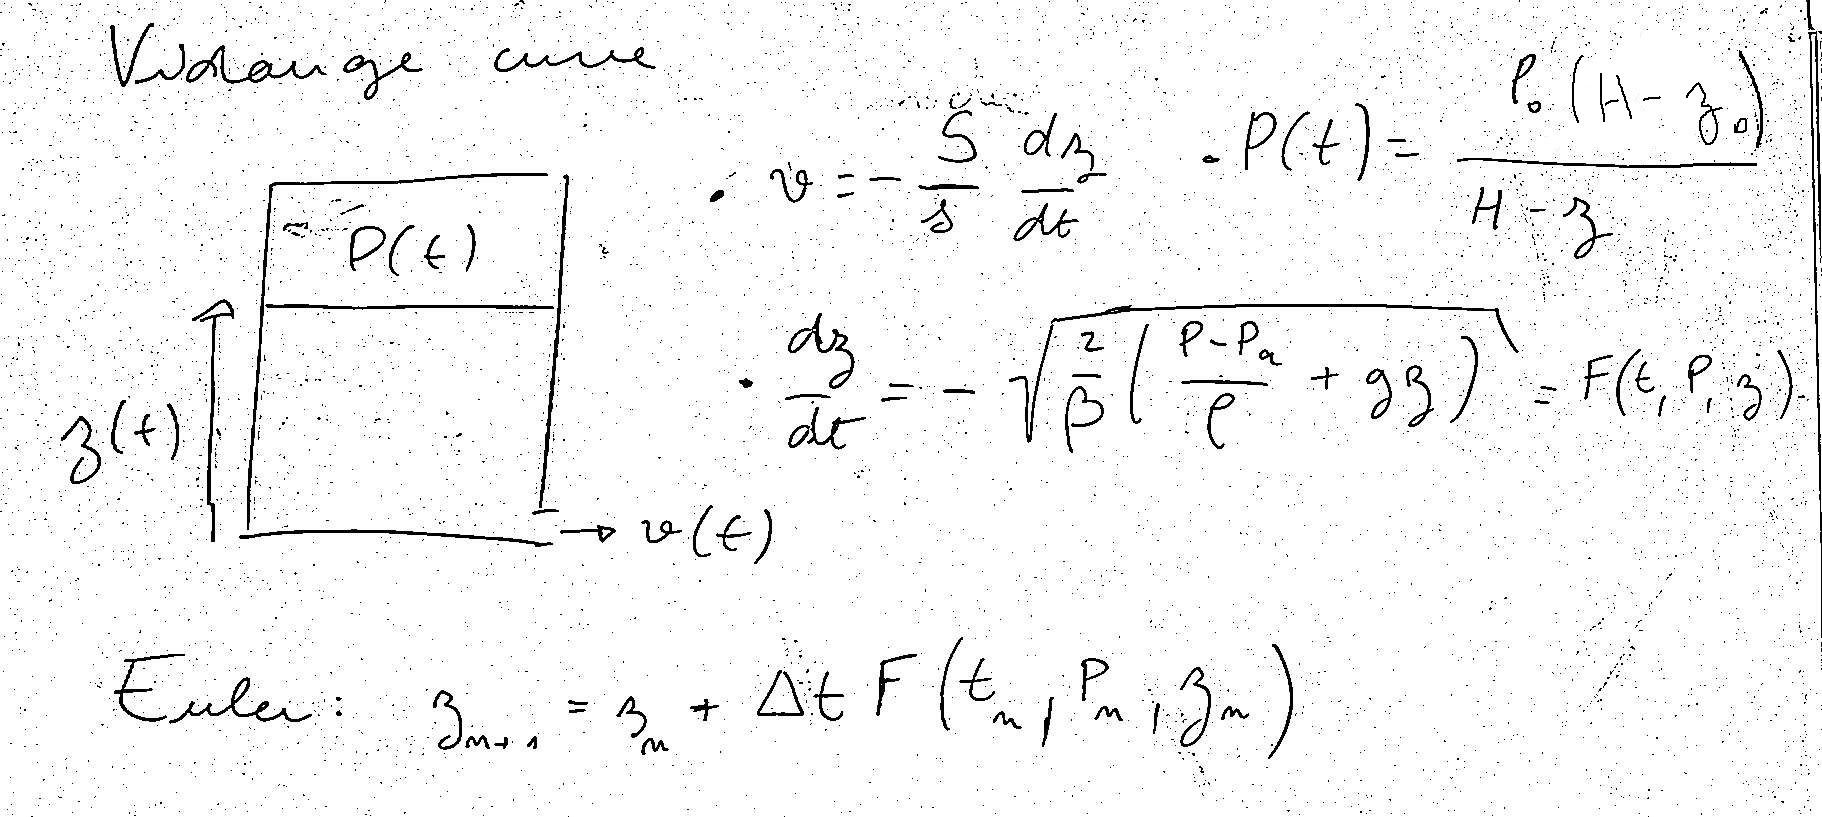 Vidange cuve
• v = - S/s dz/dt • P(t) = P₀(H - z₀) / (H - z)
P(t)
• dz/dt = - √(2/β ((P - Pa)/ρ + gz)) = F(t, P, z)
z(t)
→ v(t)
Euler: zₙ₊₁ = zₙ + Δt F(tₙ, Pₙ, zₙ)